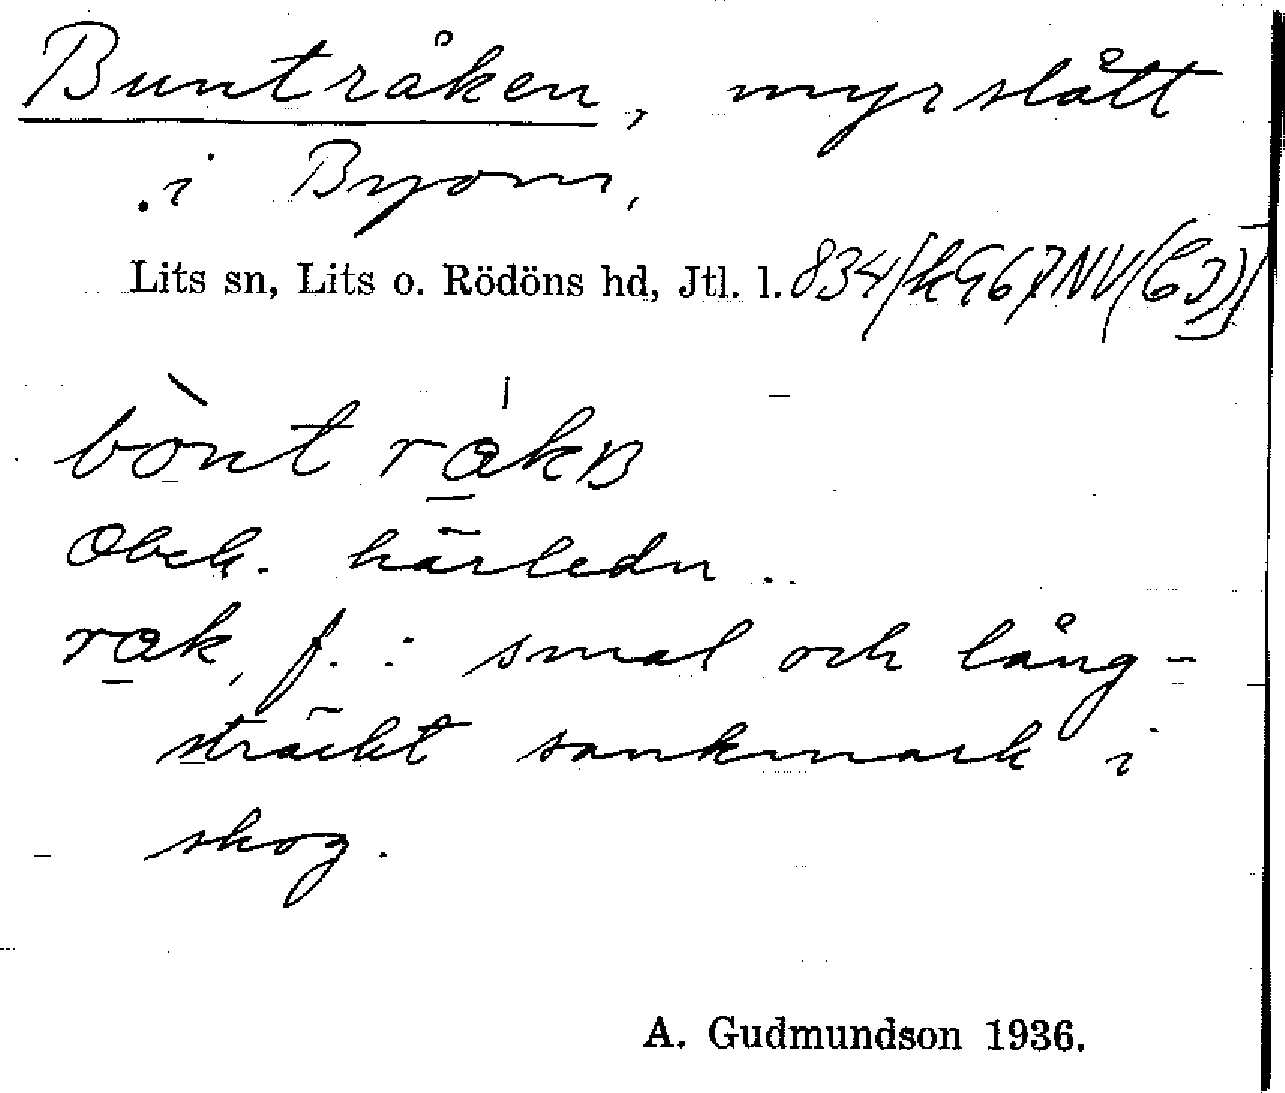 Bunträken, myrslått
i Byom,
Lits sn, Lits o. Rödöns hd, Jtl. l.
bònt
Obek. härledn..
rak, f. : smal och lång-
sträckt sankmark i
skog.
A. Gudmundson 1936.